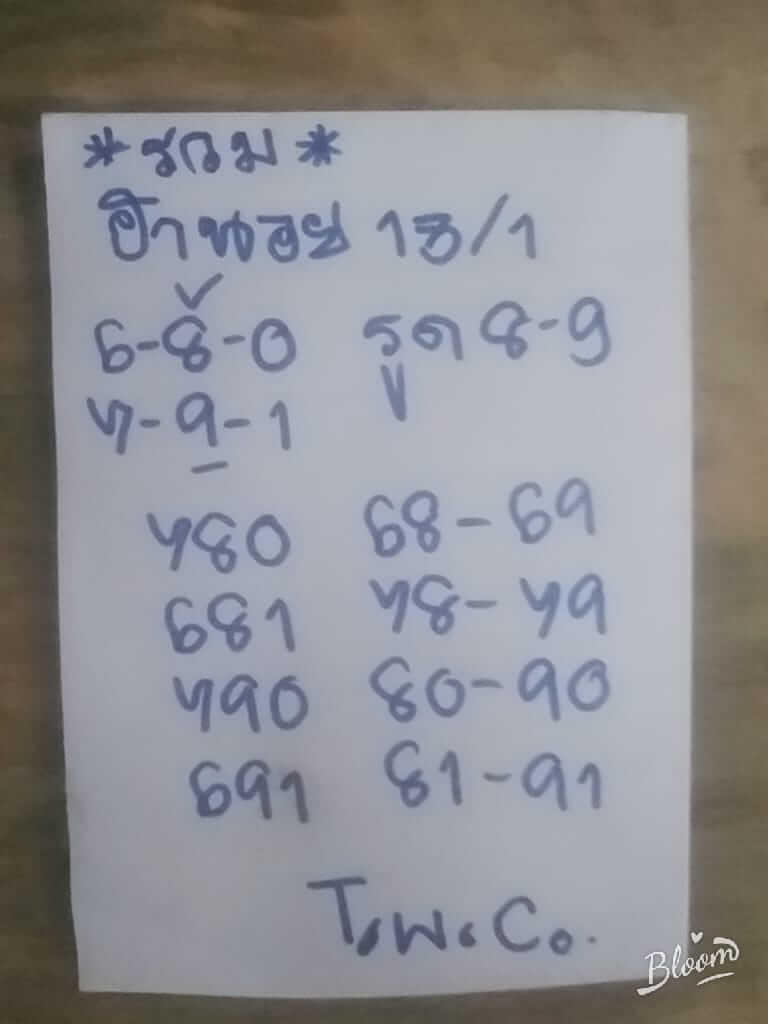 *รวม*
ฮานอย 13/1
6-8-0 รูด 8-9
7-9-1
780 68-69
681 78-79
790 80-90
691 81-91
T.พ.Co.
Bloom